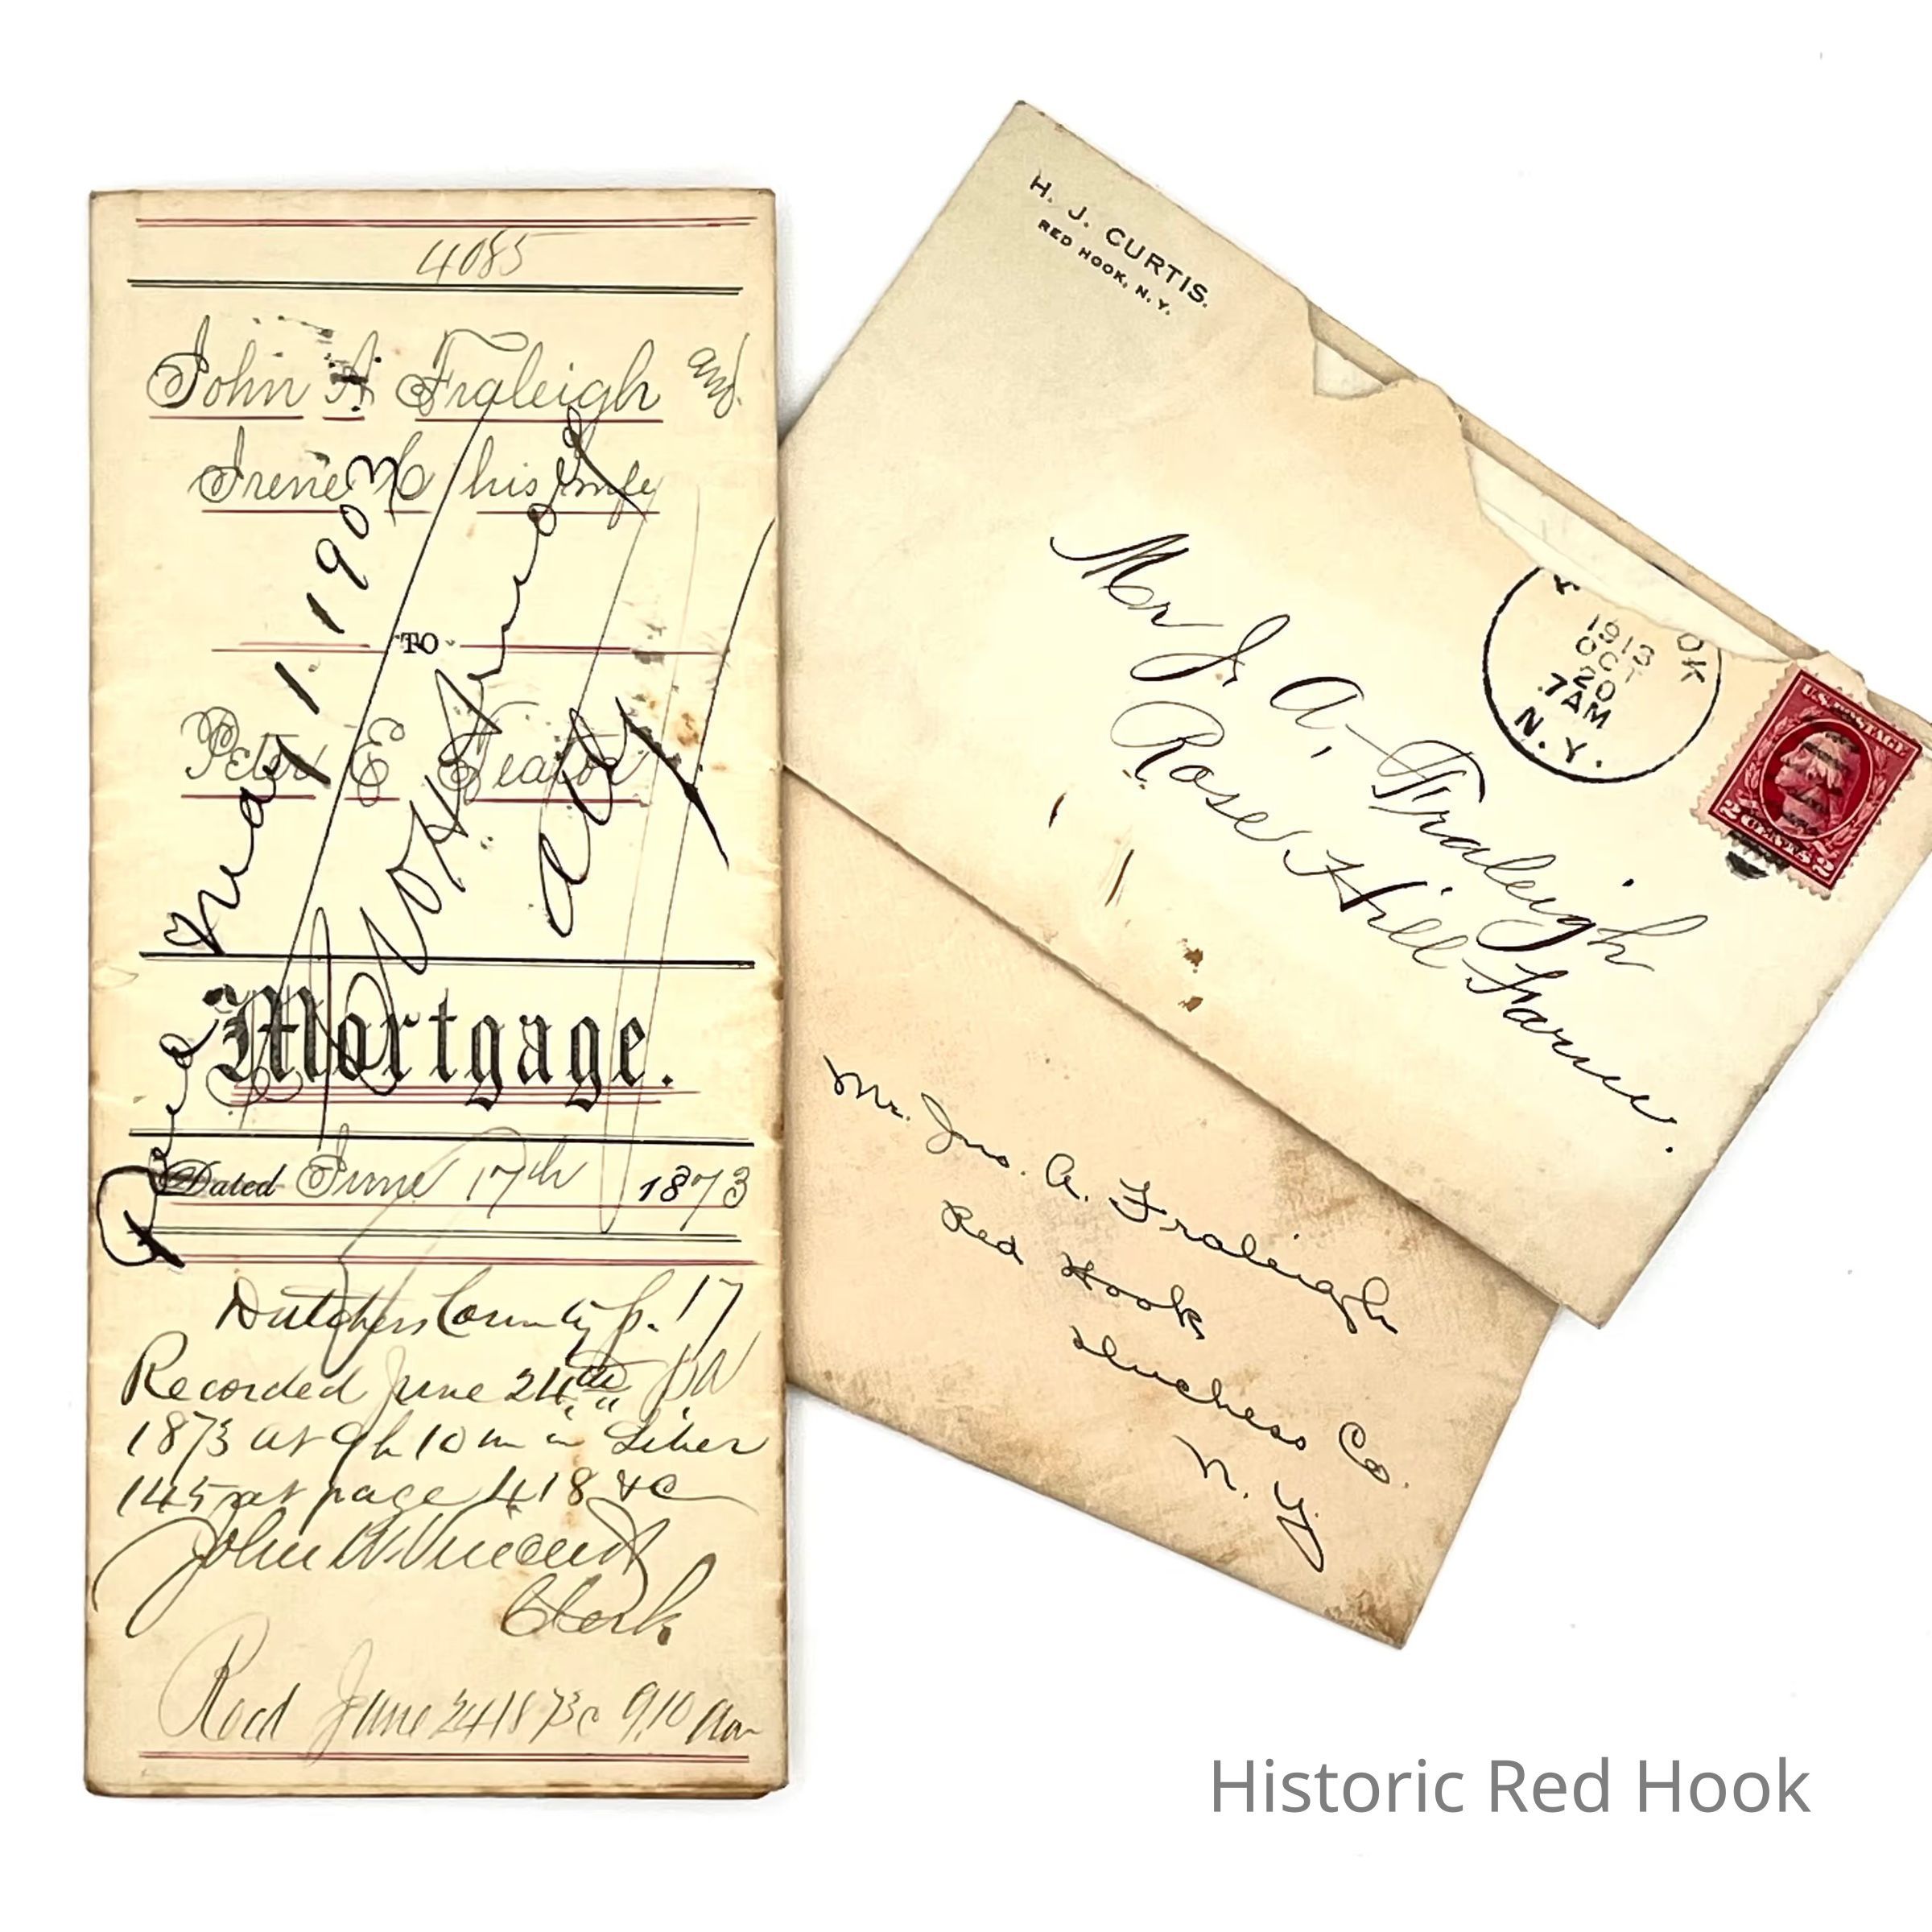 4085
John A Fraleigh and
Irene M his wife
TO
Peter E Teator
Mortgage.
Dated June 17th 1873
Dutchess County
Recorded June 24th
1873 at 9h 10m in Liber
145 at page 418 &c
John W Vincent
Clerk
Recd June 24 1873 9.10 am
May 1. 1903
H. J. CURTIS.
RED HOOK, N. Y.
Mr J. A. Fraleigh
Rose Hill Farm.
OK
1913
OCT
20
7AM
N.Y.
U.S. POSTAGE
2 CENTS 2
Mr. Jno. A. Fraleigh
Red Hook
Duchess Co.
N. Y.
Historic Red Hook